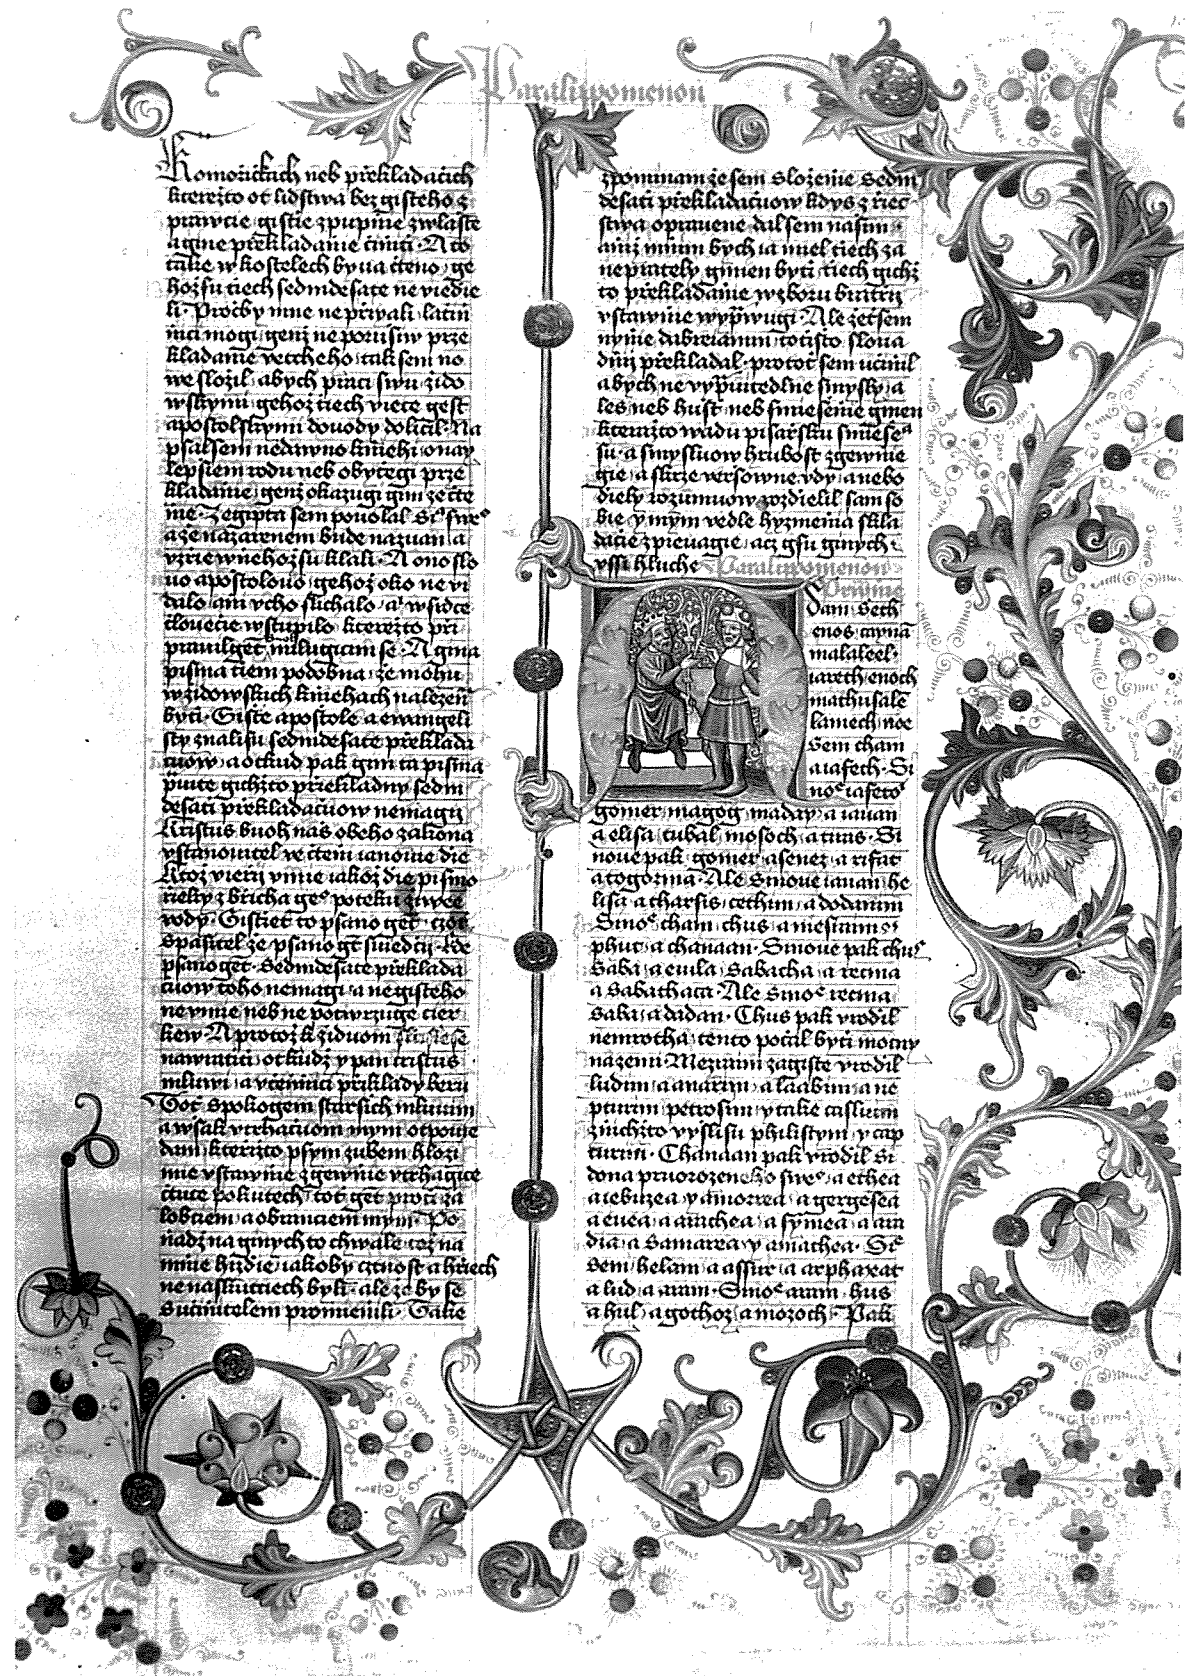 Paralippomenon I
Komorzickach neb przekladaczich
kterezto ot lidstwa bez gisteho z
prawcie gistie zpupnie zwlastie
a gine przekladanie cziniti · A to
take w kostelech bywa czteno ge
hoz su tiech sedmdesate ne viedie
li · Proczby mne ne prziyali latin
nici mogi genz ne porusiw prze
kladanie vetcheho tak sem no
we slozil abych praci swu zido
wskymi gehoz tiech viece gest
apostolskymi douody doliczil · Na
psal sem nedawno kniehi o nay
lepsiem rodu neb obyczegi prze
kladanie genz okazugi gim ze czte
nie · z egipta sem powolal
a ze nazarenem bude nazwan a
vzrie w nehoz su klali · A ono slo
wo apostolouo gehoz oko ne vi
dalo ani vcho slichalo a w sirdce
czlowiecie wstupilo kterezto przi
prawil get milugicim se · A gina
pisma tiem podobna ze mohu
w zidowskich kniehach nalezena
byti · Giste apostole a ewangeli
sty znali su sedmdesate przeklada
czuow a otkud pak gim ta pisma
prawe gichzto przekladny sedm
desati przekladaczuow nemagu
Kristus buoh nas obeho zakona
vstanowitel ve cztem ianowie die
Ktoz vierzy v mie iakoz die pismo
rzieky z brzicha geho poteku ziwee
wody · Gistiet to psano get · czoz
spasitel ze psano gt swiedczy · Kde
psano get · Sedmdesate przeklada
czuow toho nemagi a ne gisteho
ne vmie neb ne potwrzuge cier
kew · A protoz k ziduom
nawratiti otkudz y pan cristus
mluwi a vczennici przieklady beru
Tot spokogem starsich mluwim
a wsak vtrhaczuom mym otpowie
dam kterzito psym zubem hlozi
mie v stawnie zgewnie vtrhagice
cztuce pokutech tot get proti za
lobciem a obranciem mym · Po
nadz na ginych to chwale toz na
mnie hyzdie iakoby cztnost a hriech
ne naskutciech byli · ale ze by se
s uczinitelem promienili · Take
zpominam ze sem slozenie sedm
desati przekladaczuow kdys z rzec
stwa oprawene dal sem nasim
aniz mnim bych ia miel tiech za
neprzately gimen byti tiech gichz
to przekladanie w zboru bratrzy
vstawnie wyprawugi · Ale zet sem
nynie dabreiamin toczisto slowa
dnij przekladal · protot sem uczinil
abych ne vyprawitedlne smysly a
les neb hust neb smiesenie gmen
kterazto wadu pisarzsku smiesena
su · a smysluow hrubost zgewnie
gie a skrze versowne vdy a nebo
diely rozumuow rozdielil sam so
bie y mym vedle hyzmenia skla
dacie zpiewagie acz gsu ginych
vssi hluche Paralippomenon
Prwnie
Adam Seth
enos cayna
malaleel
iareth enoch
mathusale
lamech noe
Sem cham
a iafeth · Si
noe iafeto
gomer magog maday a iauan
a elisa tubal mosoch a tiras · Si
noue pak gomer asenez a rifat
a togorma · Ale Sinoue iauan he
lisa a tharsis cethim a dodanim
Sinoe cham chus a mesraim
phut a chanaan · Sinoue pak chus
Saba a euila Sabacha a recma
a Sabathaca · Ale Sinoe recma
Saba a dadan · Chus pak vrodil
nemrotha tento poczal byti motny
na zemi Mezraim zagiste vrodil
ludim a anamim a laabim a ne
ptuim petrosim y take casluim
z nichzto vyslisu philistym y cap
turim · Chanaan pak vrodil Si
dona prworozeneho sweho a ethea
a iebuzea y amorrea a gergesea
a euea a arachea a symea a ara
dia a Samarea y amathea ·
Sem helam a assur a arphaxat
a lud a aram · Sinoe aram hus
a hul a gothor a mozoch · Pak